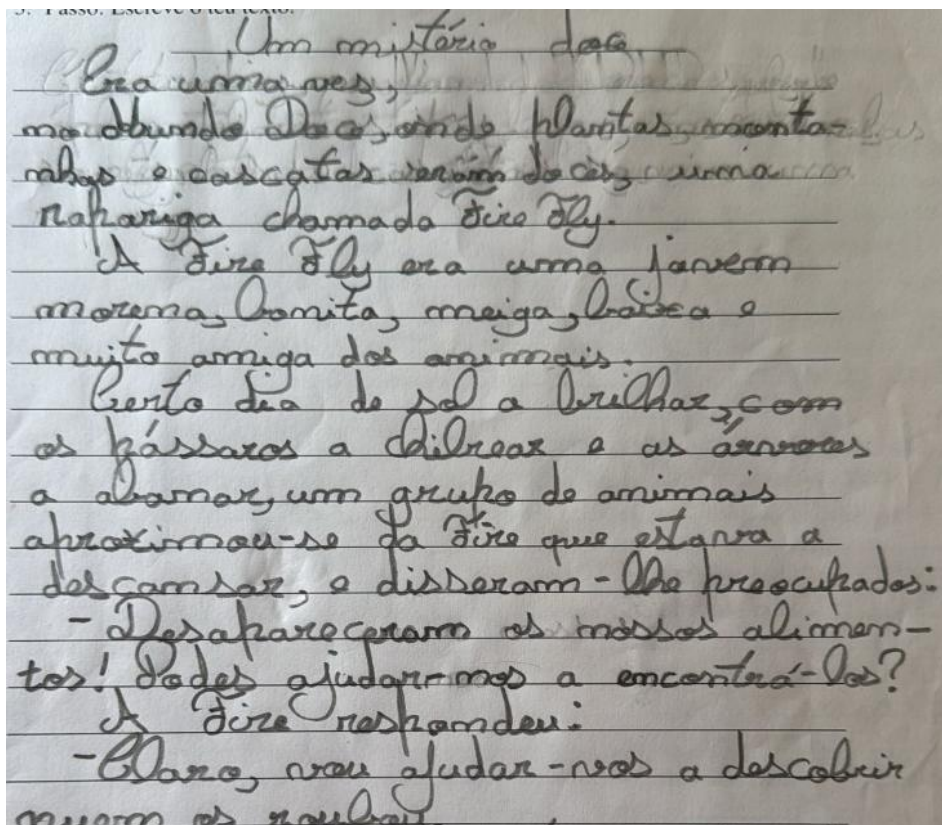 3. Passo: Escreve o teu texto.
Um mistério doce
Era uma ves,
no Mundo Doce, onde plantas, monta-
nhas e cascatas eram doces, uma
rapariga chamada Fire Fly.
A Fire Fly era uma jovem
morena, bonita, meiga, baixa e
muito amiga dos animais.
Certo dia de sol a brilhar, com
os pássaros a chilrear e as árvores
a abanar, um grupo de animais
aproximou-se da Fire que estava a
descansar, e disseram-lhe preocupados:
- Desapareceram os nossos alimen-
tos! Podes ajudar-nos a encontrá-los?
A Fire respondeu:
- Claro, vou ajudar-vos a descobrir
quem os roubou.